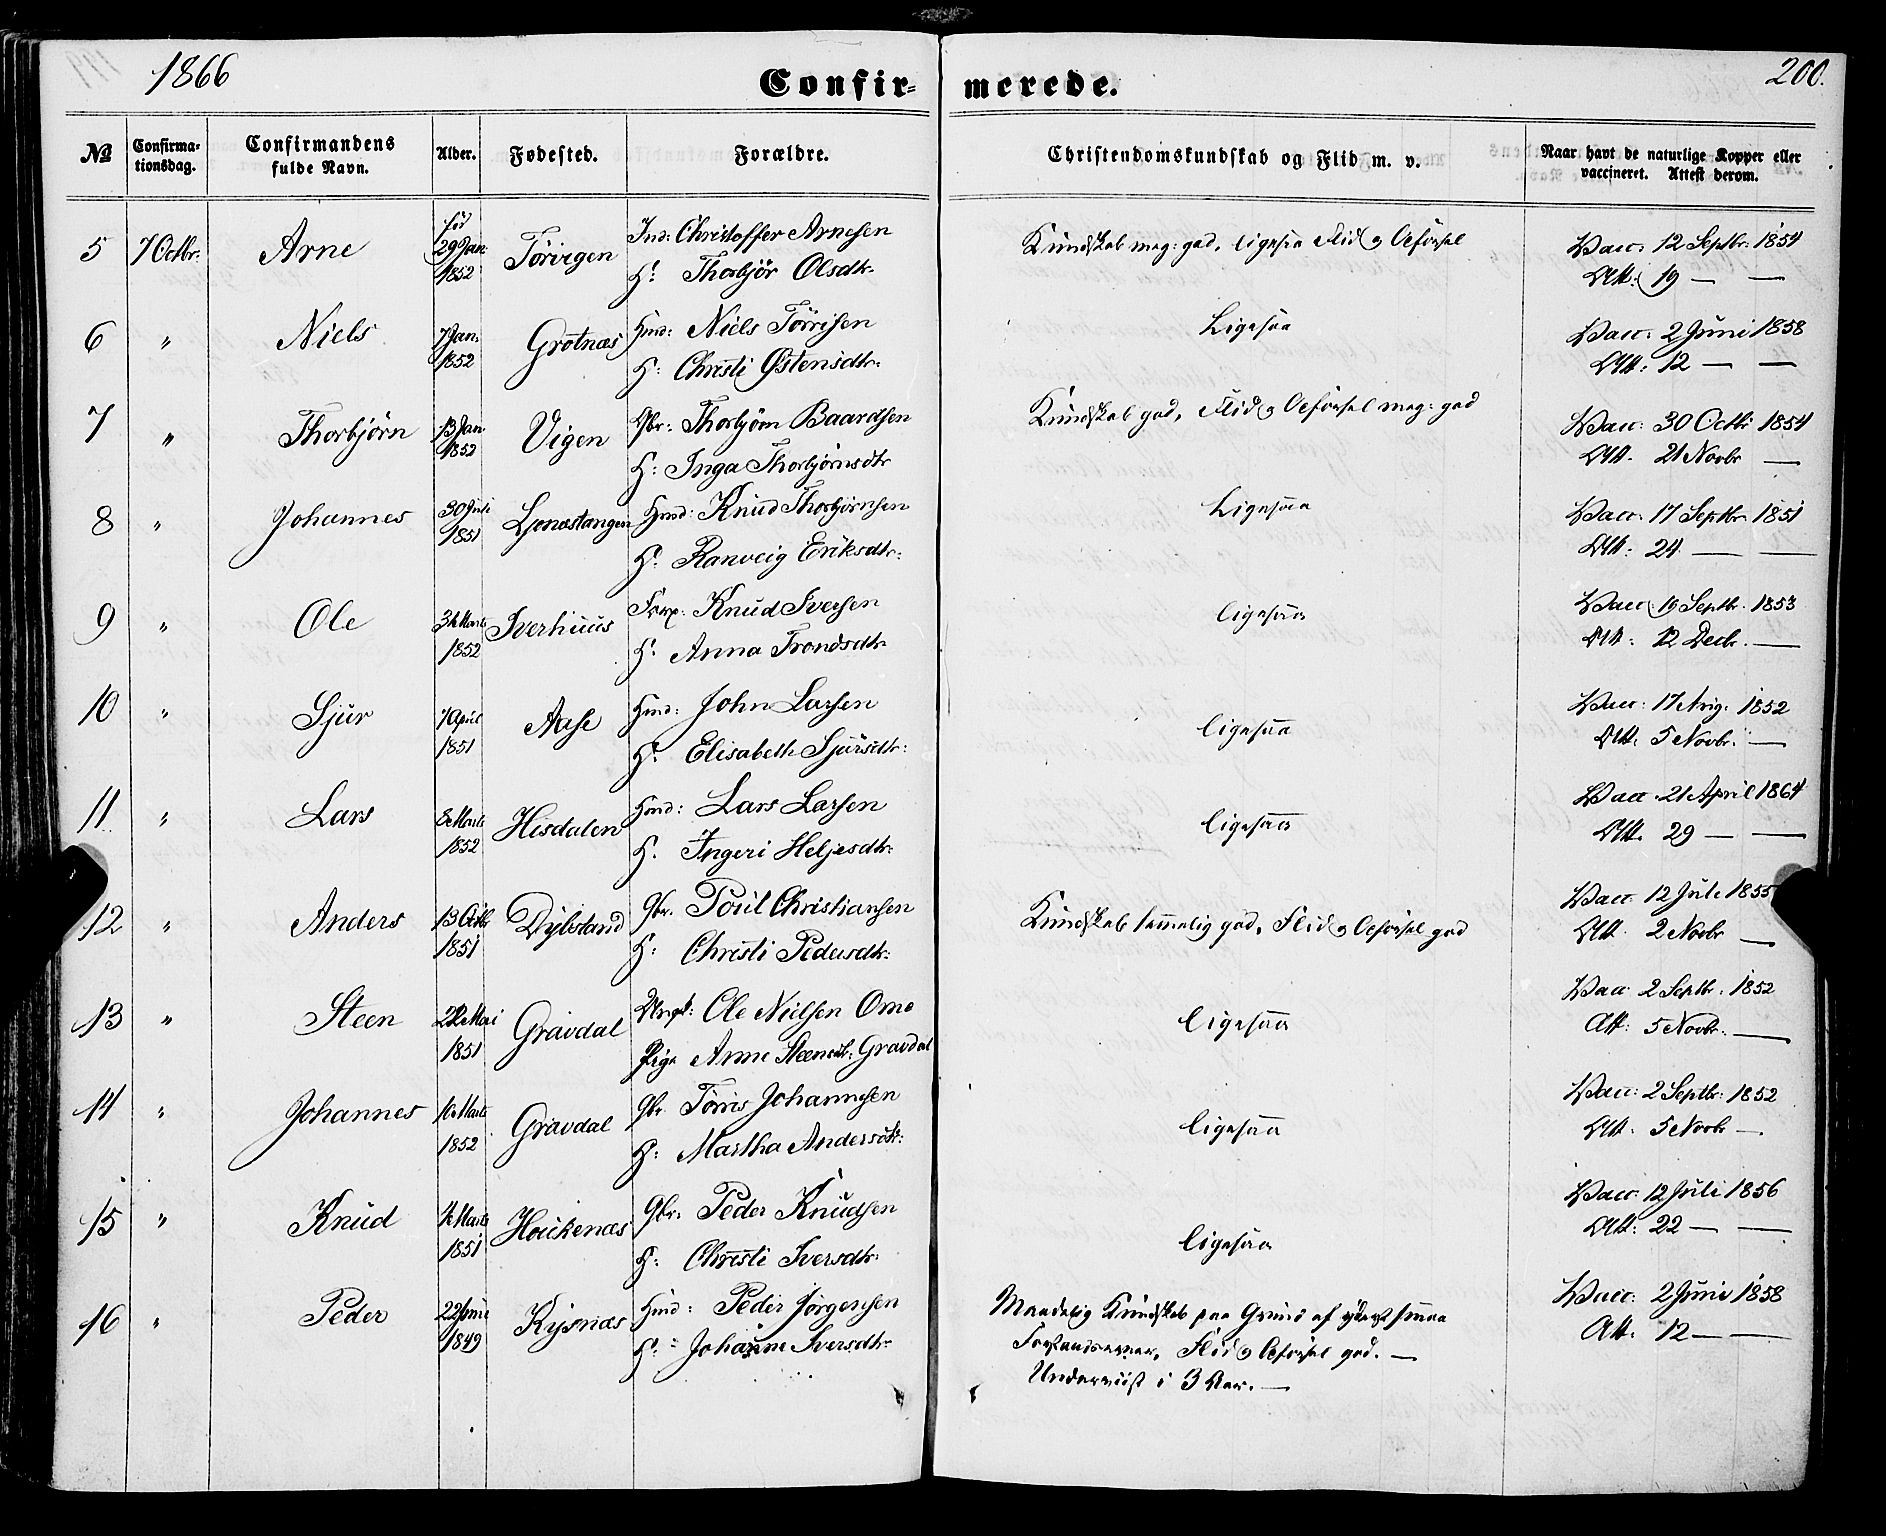 1866
Confir- merede.
200.
№ Confirma-tionsdag. Confirmandens fulde Navn. Alder. Fødested. Forældre. Christendomskundskab og Flid m. v. Naar havt de naturlige Kopper eller vaccineret. Attest derom.
5 7 Octbr: Arne fød 29 Jan: 1852 Törvigen Ind: Christoffer Arnesen Kundskab meg: god, ligesaa Flid og Opførsel Vacc: 12 Septbr: 1854
H: Thorbjör Olsdtr. Att: 19 — —
6 " Niels 7 Jan: 1852 Grotnæs Hmd: Niels Törrisen Ligesaa Vacc: 2 Juni 1858
H: Christi Østensdtr: Att: 12 — —
7 " Thorbjørn 13 Jan 1852 Vigen Gbr: Thorbjörn Baardsen Kundskab god, Flid og Opførsel meg: god Vacc: 30 Octbr 1854
H: Inga Thorbjörnsdtr Att. 21 Novbr —
8 " Johannes 30 Juli 1851 Ljonæstangen Hmd: Knud Thorbjörnsen Ligesaa Vacc: 17 Septbr 1851
H: Ranveig Eriksdtr: Att: 24 — —
9 " Ole 1852 Iverhuus Forp: Knud Iversen ligesaa Vacc: 19 Septbr. 1853
H: Anna Trondsdtr Att: 12 Decbr. —
10 " Sjur 7 April 1851 Aase Hmd: John Larsen ligesaa Vacc: 17 Aug: 1852
H: Elisabeth Sjursdtr: Att: 5 Novbr. —
11 " Lars 8 Marts 1852 Hisdalen Hmd: Lars Larsen ligesaa Vacc. 21 April 1864
H. Ingeri Heljesdtr: Att. 29 — —
12 " Anders 13 Octbr 1851 Dybsland Gbr. Poul Christiansen Kundskab temmelig god, Flid og Opførsel god Vacc 12 Juli 1855
H: Christi Pedersdtr: Att. 2 Novbr —
13 " Steen 22 Mai 1851 Gravdal Ungk: Ole Nielsen Omo ligesaa Vacc: 2 Septbr: 1852
Pige Anne Steensdtr: Gravdal Att: 5 Novbr: —
14 " Johannes 10 Marts 1852 Gravdal Gbr. Törris Johannesen ligesaa Vacc: 2 Septbr: 1852
H: Martha Andersdtr: Att: 5 Novbr —
15 " Knud Marts 1851 Houkenæs Gbr: Peder Knudsen ligesaa Vacc: 12 Juli 1856
H: Christi Iversdtr. Att: 22 — —
16 " Peder 22 Juni 1849 Kysnæs Hmd: Peder Jörgensen Maadelig Kundskab paa Grund af yderst smaa Vacc: 2 Juni 1858
H: Johanne Iversdtr. Forstandsevner, Flid og Opførsel god. — Att. 12 — —
Underviist i 3 Aar. —